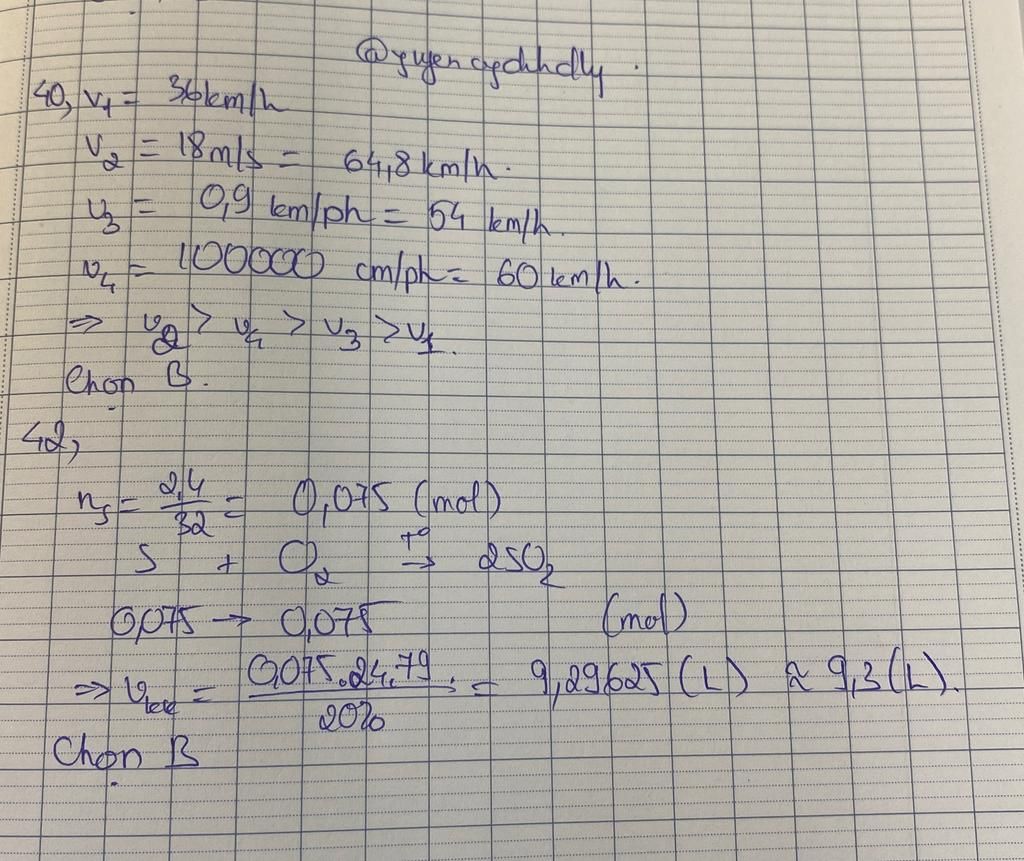 40, v₁ = 36km/h
v₂ = 18m/s = 64,8 km/h.
v₃ = 0,9 km/ph = 54 km/h.
v₄ = 100000 cm/ph = 60 km/h.
⇒ v₂ > v₄ > v₃ > v₁.
Chọn B.
42,
nₛ = 2,4/32 = 0,075 (mol)
S + O₂ →(t°) 2SO₂
0,075 → 0,075 (mol)
⇒ Vₖₖ = 0,075.24,79/20% = 9,29625 (L) ≈ 9,3 (L).
Chọn B